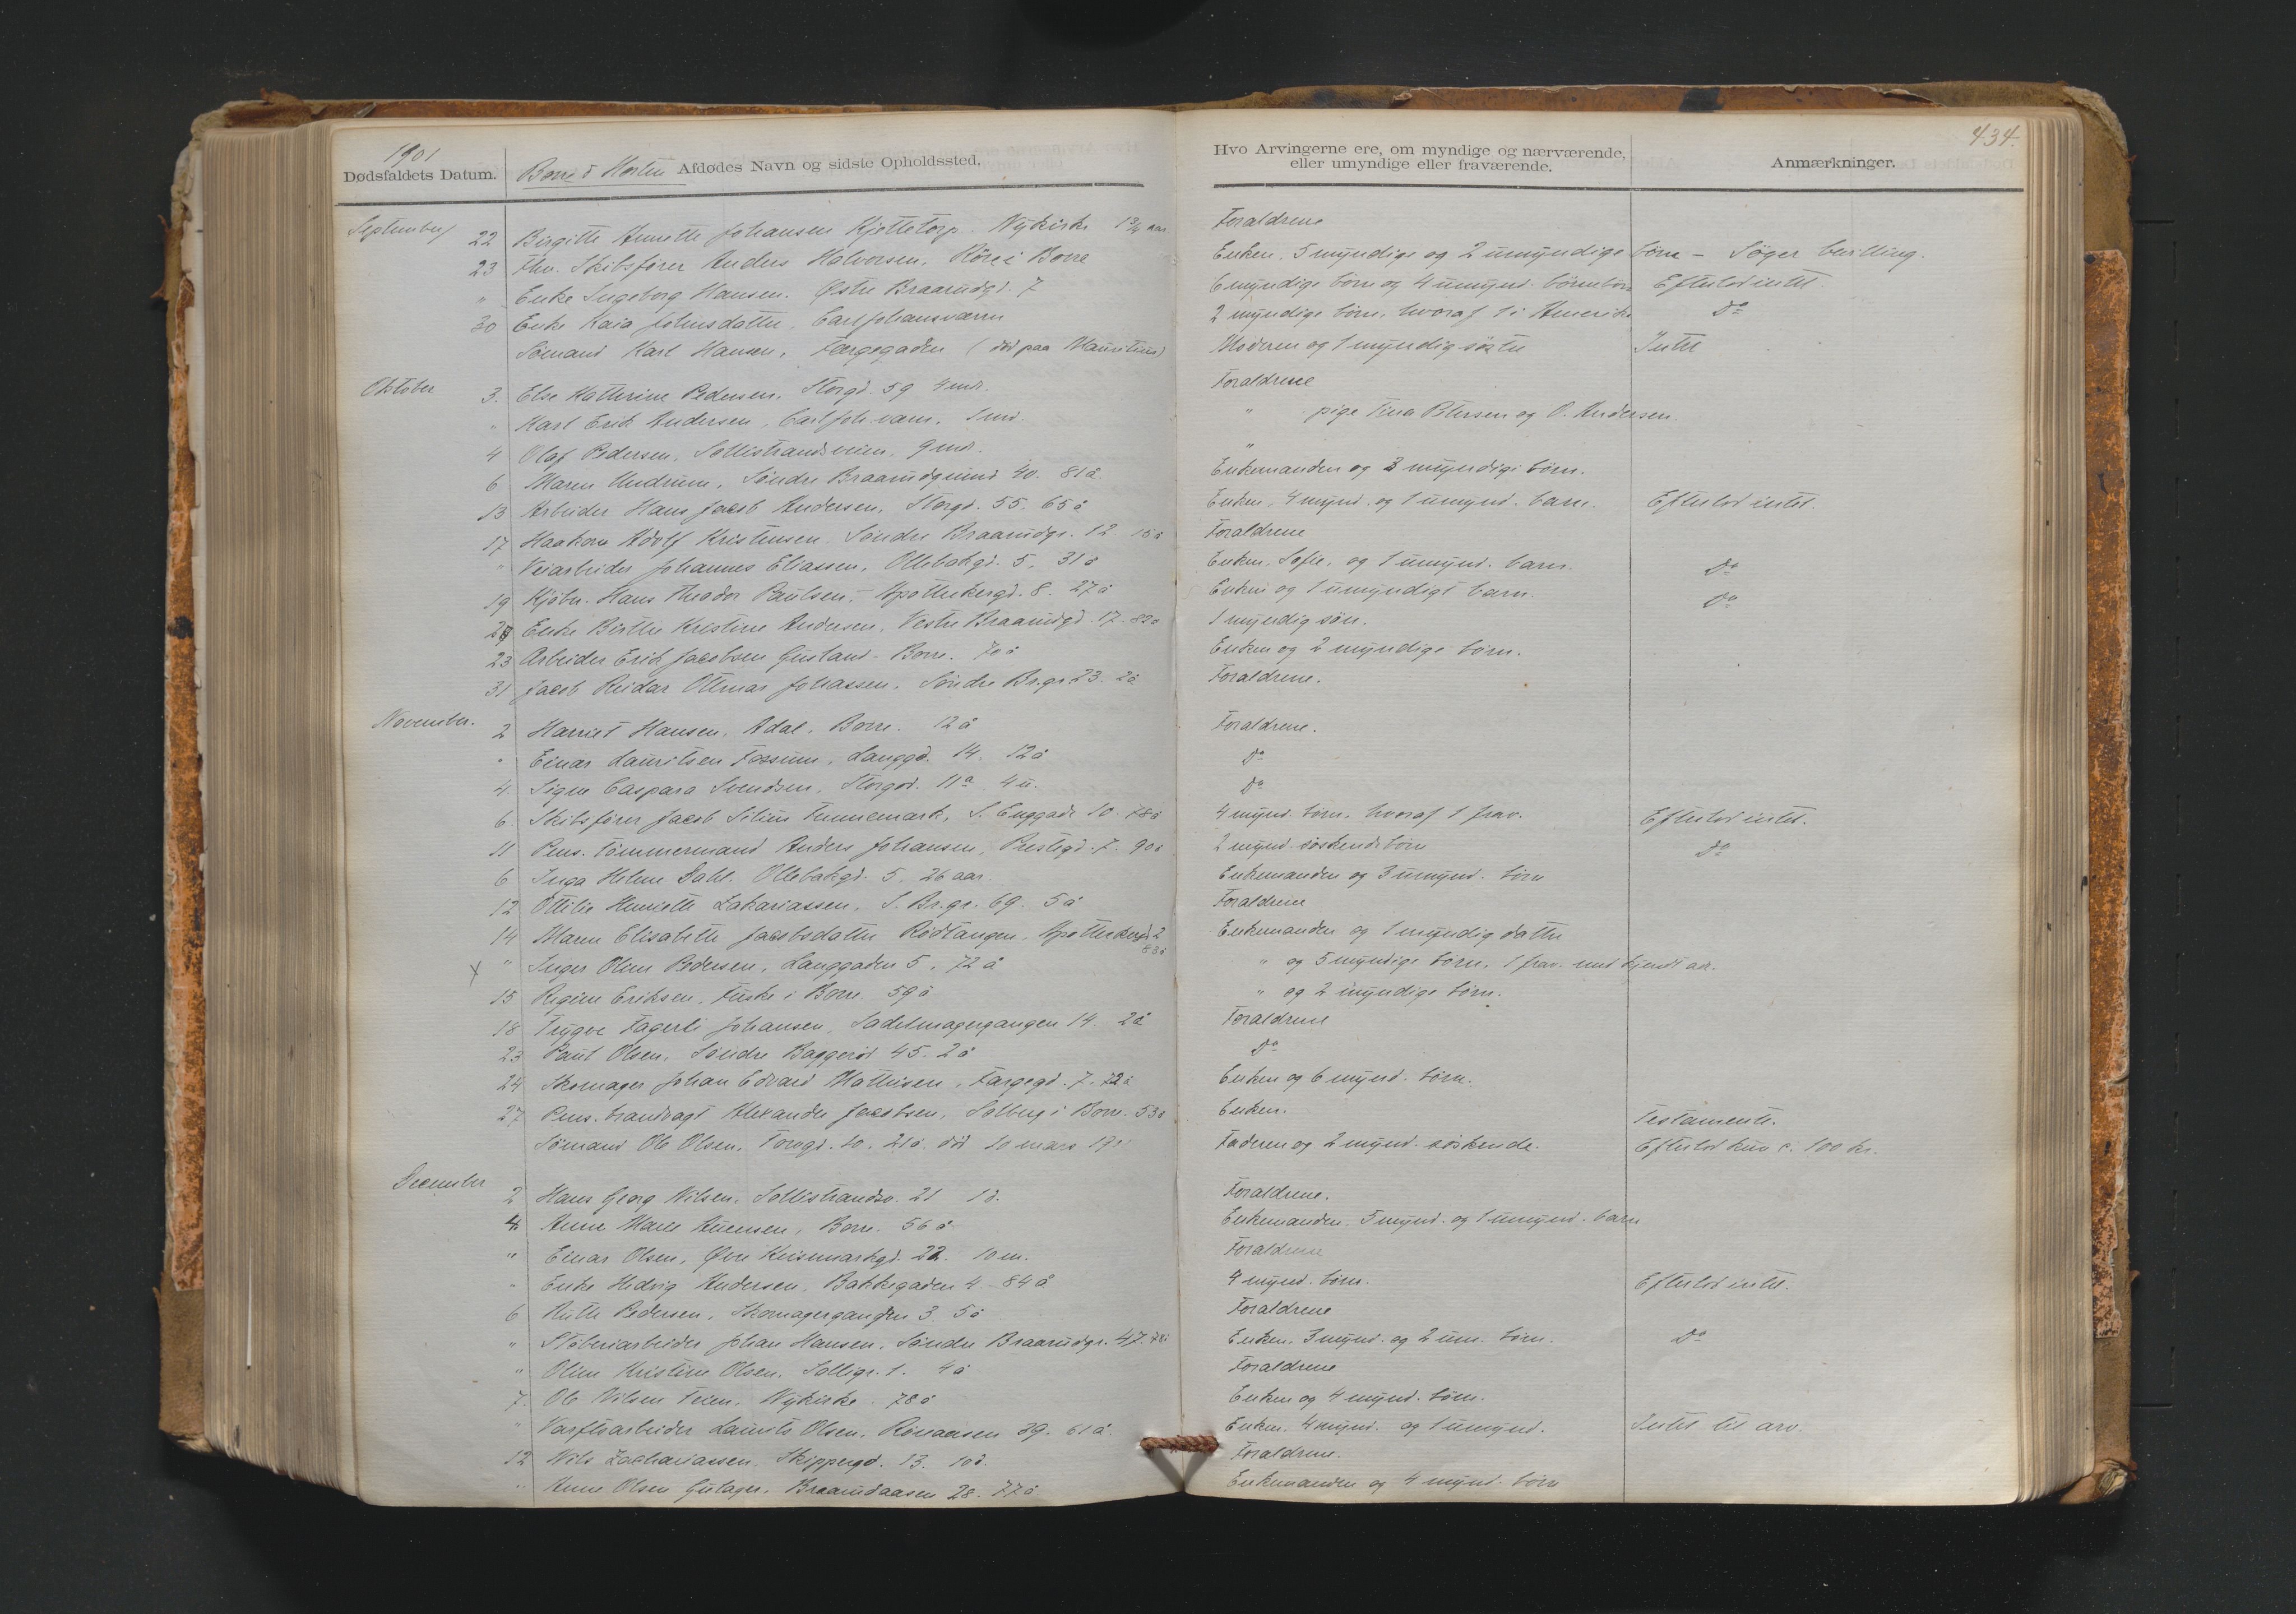 1901
Dødsfaldets Datum.
Borre & Horten Afdødes Navn og sidste Opholdssted.
September
22 Birgitte Annette Johansen Kjettetorp. Nykirke 1 3/4 aar.
23 Fhv. Skibsfører Anders Halvorsen, Röre i Borre
" Enke Ingeborg Hansen. Østre Braarudgd. 7
30 Enke Kaia Johnsdatter, Carljohansværn
Sømand Karl Hansen, Færgegaden (död paa Mauritius)
Oktober
3. Else Kathrine Pedersen, Storgd. 59 4 md.
" Karl Erik Andersen, Carljoh.værn,
4 Olaf Pedersen, Sollistrandsveien, 9 md.
6 Maren Undrum, Søndre Braarudgrund 40. 81 å
13 Arbeider Hans Jacob Andersen, Storgd. 55. 65 å
17 Haakon Adolf Kristensen Søndre Braarudgr. 12 15 å
" Veiarbeider Johannes Eliassen, Ollebakgd. 5, 31 å
19 Kjøbm. Hans Theodor Paulsen, Apothekergd. 8. 27 å
Enke Birthe Kristine Andersen, Vestre Braarudgd. 17. 82 å
23 Arbeider Erik Jacobsen Gustand - Borre. 70 å
31 Jacob Reidar Ottmar Johassen, Søndre Br.gr 23. 2 å
November.
2 Harriet Hansen, Adal, Borre. 12 å
" Einar Lauritsen Fossum, Langgd. 14. 12 å
4. Signe Caspara Svendsen, Storgd. 11a 4 u.
6. Skibsfører Jacob Silius Funnemark, S. Enggade 10. 78 å
11 Pens. Tømmermand Anders Johansen, Prestegd. 7. 90 å
6 Inga Helene Dahl. Ollebakgd. 5, 26 aar.
12 Ottilie Henriette Zakariassen, S. Br.gr. 69. 5 å
14 Maren Elisabeth Jacobsdatter Rødtangen, Apothekergd. 2
83 å
X " Inger Oline Pedersen, Langgaden 5, 72 å
15 Regine Eriksen, Fuske i Borre. 59 å
18 Trygve Fagerli Johansen, Sadelmagergangen 14. 2 å
23 Paul Olsen, Søndre Baggerød 45. 2 å
24 Skomager Johan Edvard Mathisen, Færgegd. 7. 72 å
27 Pens. brandvagt Alexander Jacobsen, Solberg i Borre. 53 å
Sømand Ole Olsen, Torvgd. 10. 21 å. död 10 mars 1901
December
2 Hans Georg Nilsen, Sollistrandsv. 21 1 d.
4. Anne Marie Anensen, Borre. 56 å
" Einar Olsen, Øvre Keisemarkgd. 22. 10 m.
" Enke Hedvig Andersen, Bakkegaden 4 - 84 å
6 Ruth Pedersen, Skomagergangen 3. 5 å
" Støberiarbeider Johan Hansen, Søndre Braarudgr. 47.
" Oline Kristine Olsen, Solligr. 1. 4 å
7. Ole Nilsen Teien, Nykirke. 78 å
" Værftsarbeider Laurits Olsen, Röraasen 39. 61 å.
12 Nils Zachariassen, Skippergd. 13. 10 d.
" Anne Olsen Gutager, Braarudaasen 28. 77 å
434.
Hvo Arvingerne ere, om myndige og nærværende,
eller umyndige eller fraværende.
Anmærkninger.
Foraldrene
Enken, 5 myndige og 2 umyndige börn - Söger bevilling.
6 myndige börn og 4 umynd. börnebörn Efterlod intet.
2 myndige börn, hvoraf 1 i Amerika Do
Moderen og 1 myndig söster Intet
Foraldrene
" pige Tina Petersen og O. Andersen.
"
Enkemanden og 3 myndige börn.
Enken, 4 mynd. og 1 umynd. barn. Efterlod intet.
Foraldrene
Enken, Sofie, og 1 umynd. barn. Do
Enken og 1 umyndigt barn. Do
1 myndig sön.
Enken og 2 myndige börn.
Foraldrene.
Foraldrene.
Do
Do
4 mynd. börn, hvoraf 1 frav. Efterlod intet.
2 mynd. söskendebörn Do
Enkemanden og 3 umynd. börn
Foraldrene
Enkemanden og 1 myndig datter
" og 5 myndige börn, 1 frav. med kjendt adr.
" og 2 myndige börn.
Foraldrene
Do
Enken og 6 mynd. börn.
Enken. Testamente.
Faderen og 2 mynd. söskende. Efterlod kun c. 100 kr.
Foraldrene.
Enkemanden. 5 mynd. og 1 umynd. barn
Foraldrene
4 mynd. börn. Efterlod intet.
Foraldrene
Enken, 3 mynd. og 2 um. börn. Do
Foraldrene
Enken og 4 mynd. börn.
Enken, 4 mynd. og 1 umynd. Intet til arv.
Foraldrene.
Enkemanden og 4 mynd. börn